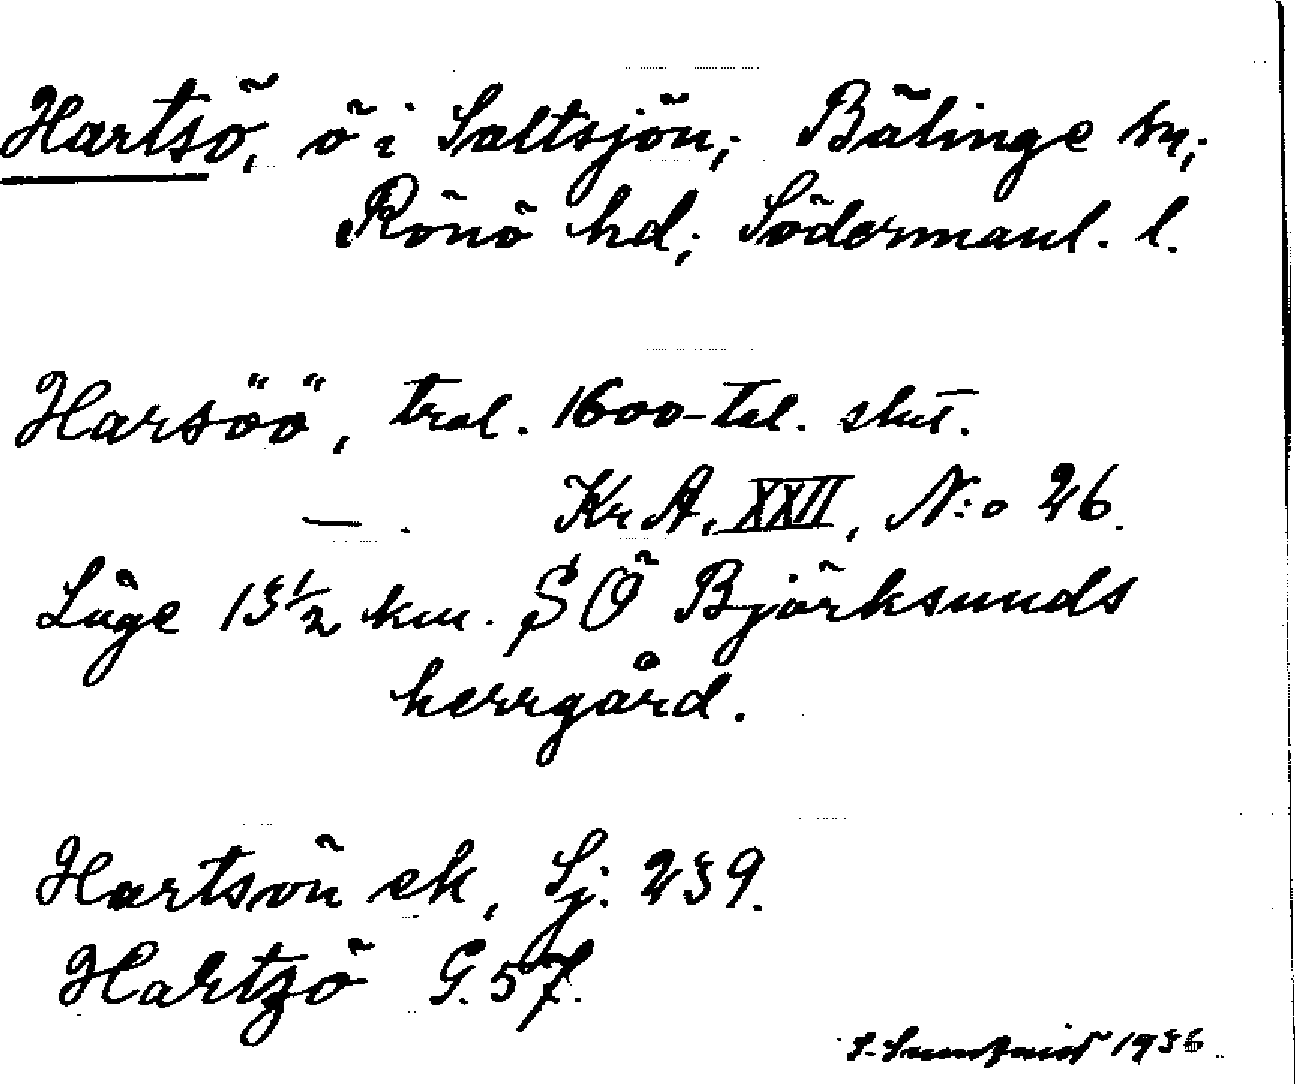 Hartsö, ö i Saltsjön; Bälinge sn;
Rönö hd; Södermanl. l.
Harsöö, trol. 1600-tal. slut.
— . Kr A, XXII, N:o 26.
Läge 13 1/2 km. SÖ Björksunds
herrgård.
Hartsön ek, Sj. 239.
Hartzö G. 57.
1936